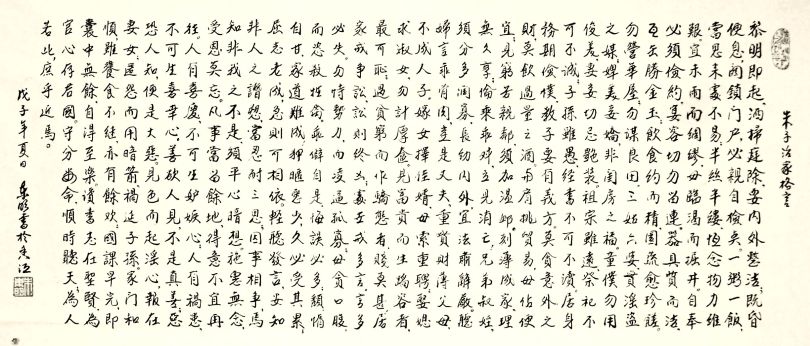 朱子治家格言
黎明即起洒掃庭除要內外整潔既昏
便息關鎖門戶必親自檢點一粥一飯
當思來處不易半絲半縷恆念物力維
艱宜未雨而綢繆毋臨渴而掘井自奉
必須儉約宴客切勿留連器具質而潔
瓦缶勝金玉飲食約而精園蔬愈珍饈
勿營華屋勿謀良田三姑六婆實淫盜
之媒婢美妾嬌非閨房之福童僕勿用
俊美妻妾切忌艷裝祖宗雖遠祭祀不
可不誠子孫雖愚經書不可不讀居身
務期儉樸教子要有義方莫貪意外之
財莫飲過量之酒與肩挑貿易毋佔便
宜見窮苦親鄰須加溫卹刻薄成家理
無久享倫常乖舛立見消亡兄弟叔姪
須分多潤寡長幼內外宜法肅辭嚴聽
婦言乖骨肉豈是丈夫重貲財薄父母
不成人子嫁女擇佳婿毋索重聘娶媳
求淑女勿計厚奩見富貴而生諂容者
最可恥遇貧窮而作驕態者賤莫甚居
家戒爭訟訟則終凶處世戒多言言多
必失勿恃勢力而凌逼孤寡毋貪口腹
而恣殺牲禽乖僻自是悔誤必多頹惰
自甘家道難成狎暱惡少久必受其累
屈志老成急則可相依輕聽發言安知
非人之譖愬當忍耐三思因事相爭焉
知非我之不是須平心暗想施惠無念
受恩莫忘凡事當留餘地得意不宜再
往人有喜慶不可生妒嫉心人有禍患
不可生喜幸心善欲人見不是真善惡
恐人知便是大惡見色而起淫心報在
妻女匿怨而用暗箭禍延子孫家門和
順雖饔飧不繼亦有餘歡國課早完即
囊中無餘自得至樂讀書志在聖賢為
官心存君國守分安命順時聽天為人
若此庶乎近焉
戊子年夏日書於香江